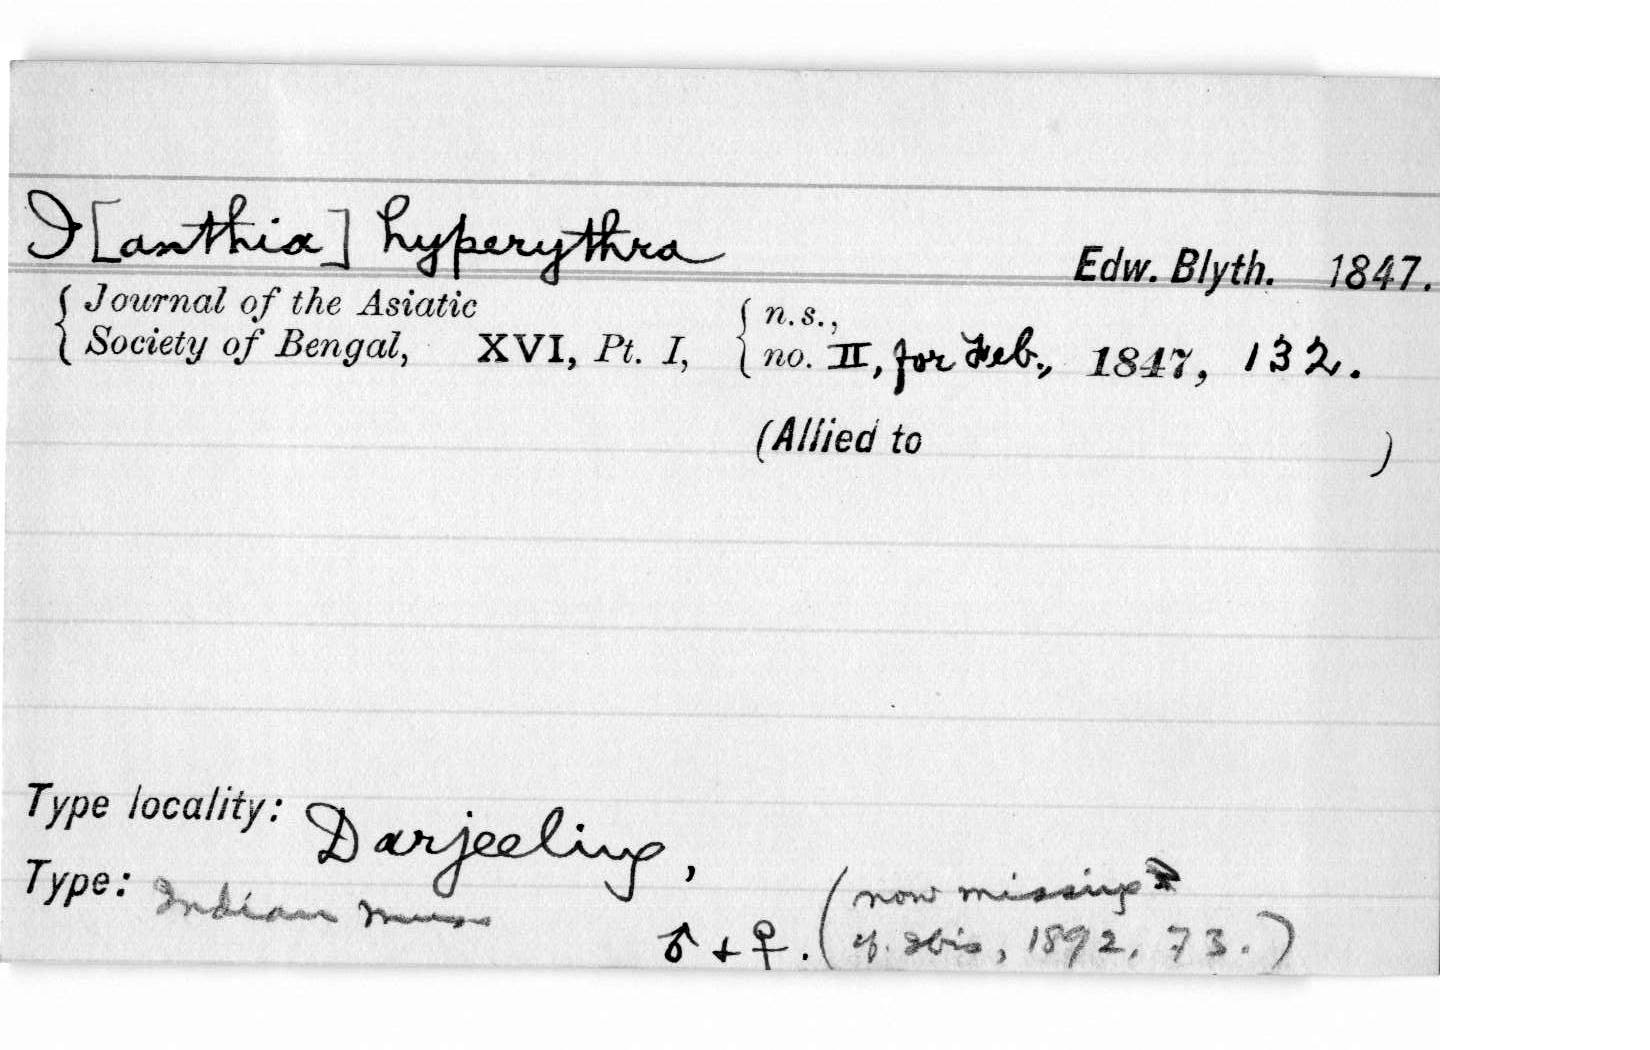 I[anthia] hyperythra
Edw. Blyth. 1847.
{ Journal of the Asiatic { n.s.,
{ Society of Bengal, XVI, Pt. I, { no. II, for Feb., 1847, 132.
(Allied to )
Type locality: Darjeeling,
Type: Indian Mus
♂ + ♀. (now missing
cf. Ibis, 1892, 73.)